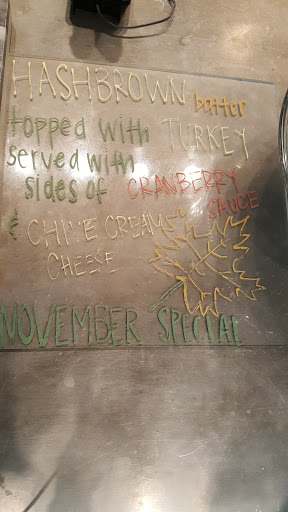 HASHBROWN batter
topped with TURKEY
served with
sides of CRANBERRY
SAUCE
& CHIVE CREAM
CHEESE
NOVEMBER SPECIAL